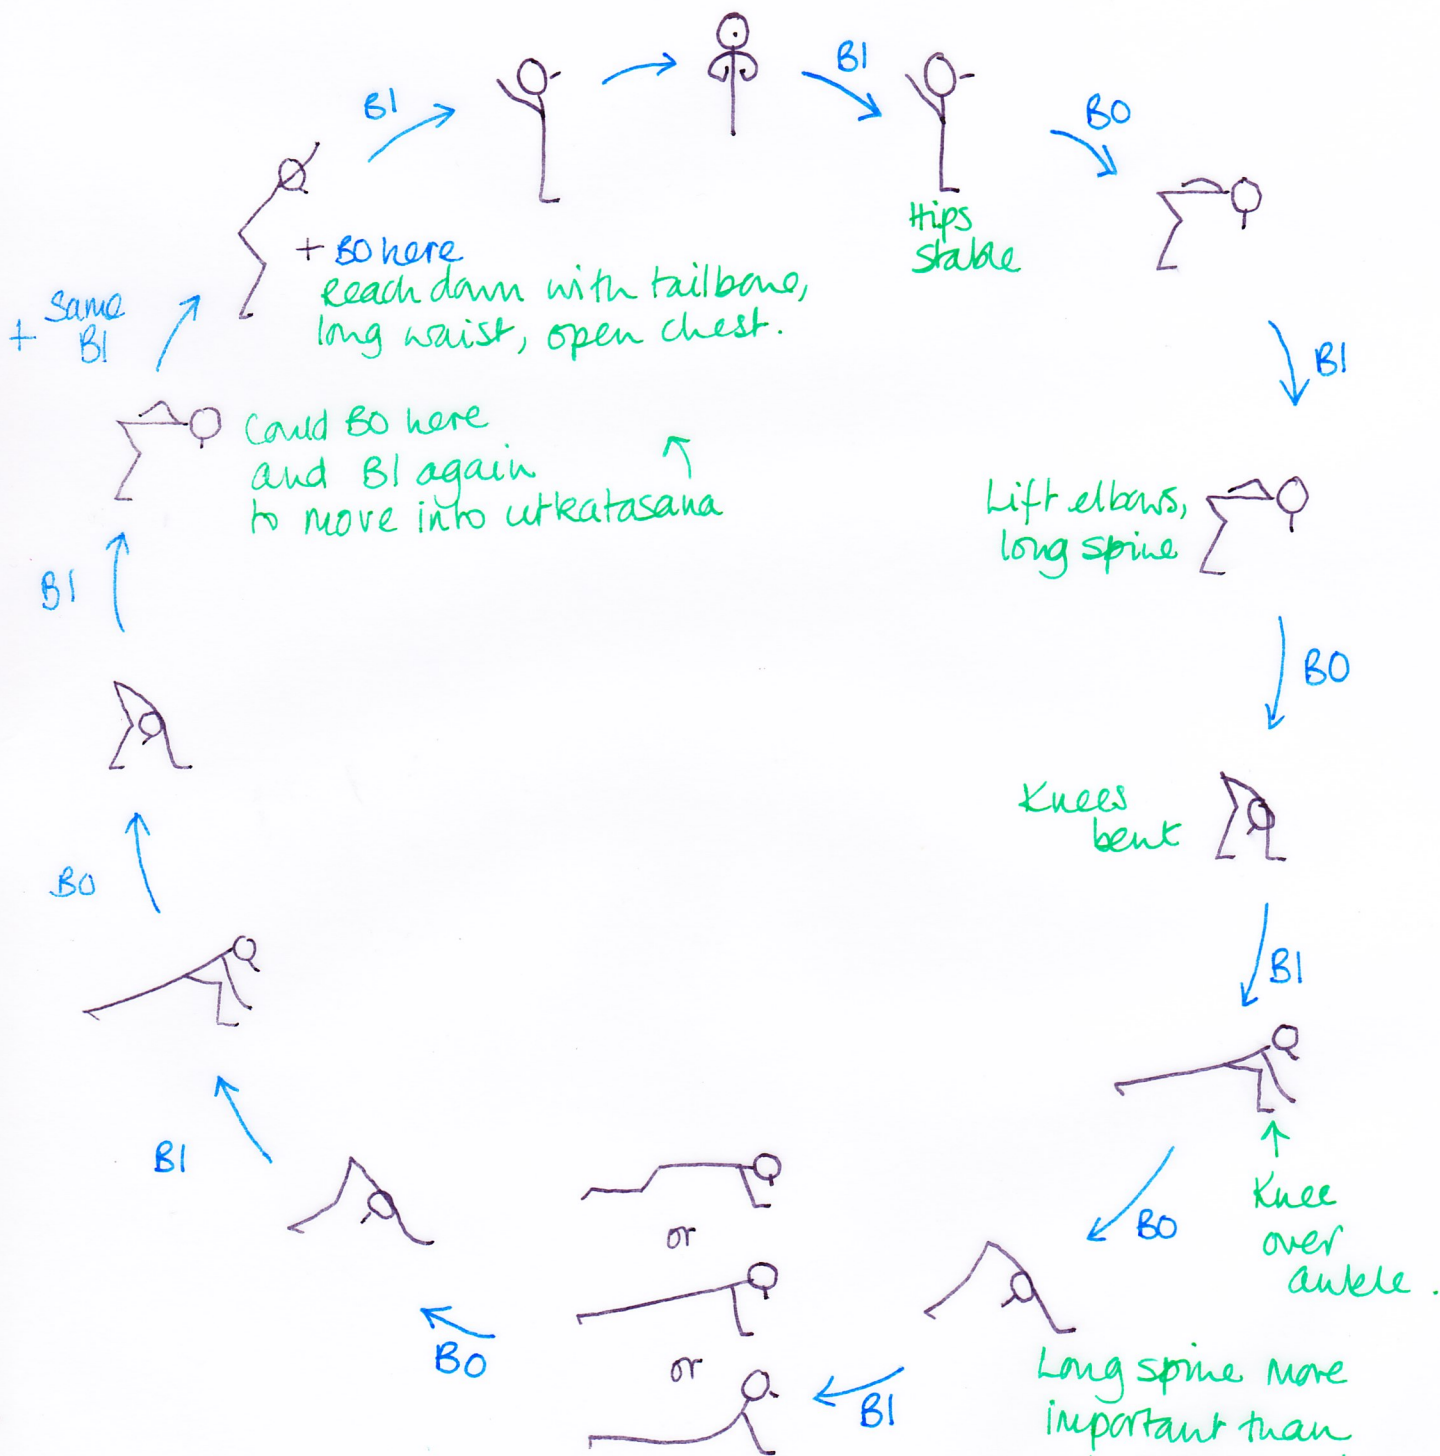 BI
Hips
stable
BO
BI
Lift elbows,
long spine
BO
Knees
bent
BI
Knee
over
ankle.
BO
Long spine more
important than
BI
or
or
BO
BI
BO
BI
Could BO here
and BI again
to move into utkatasana
+ Same
BI
+ BO here
Reach down with tailbone,
long waist, open chest.
BI